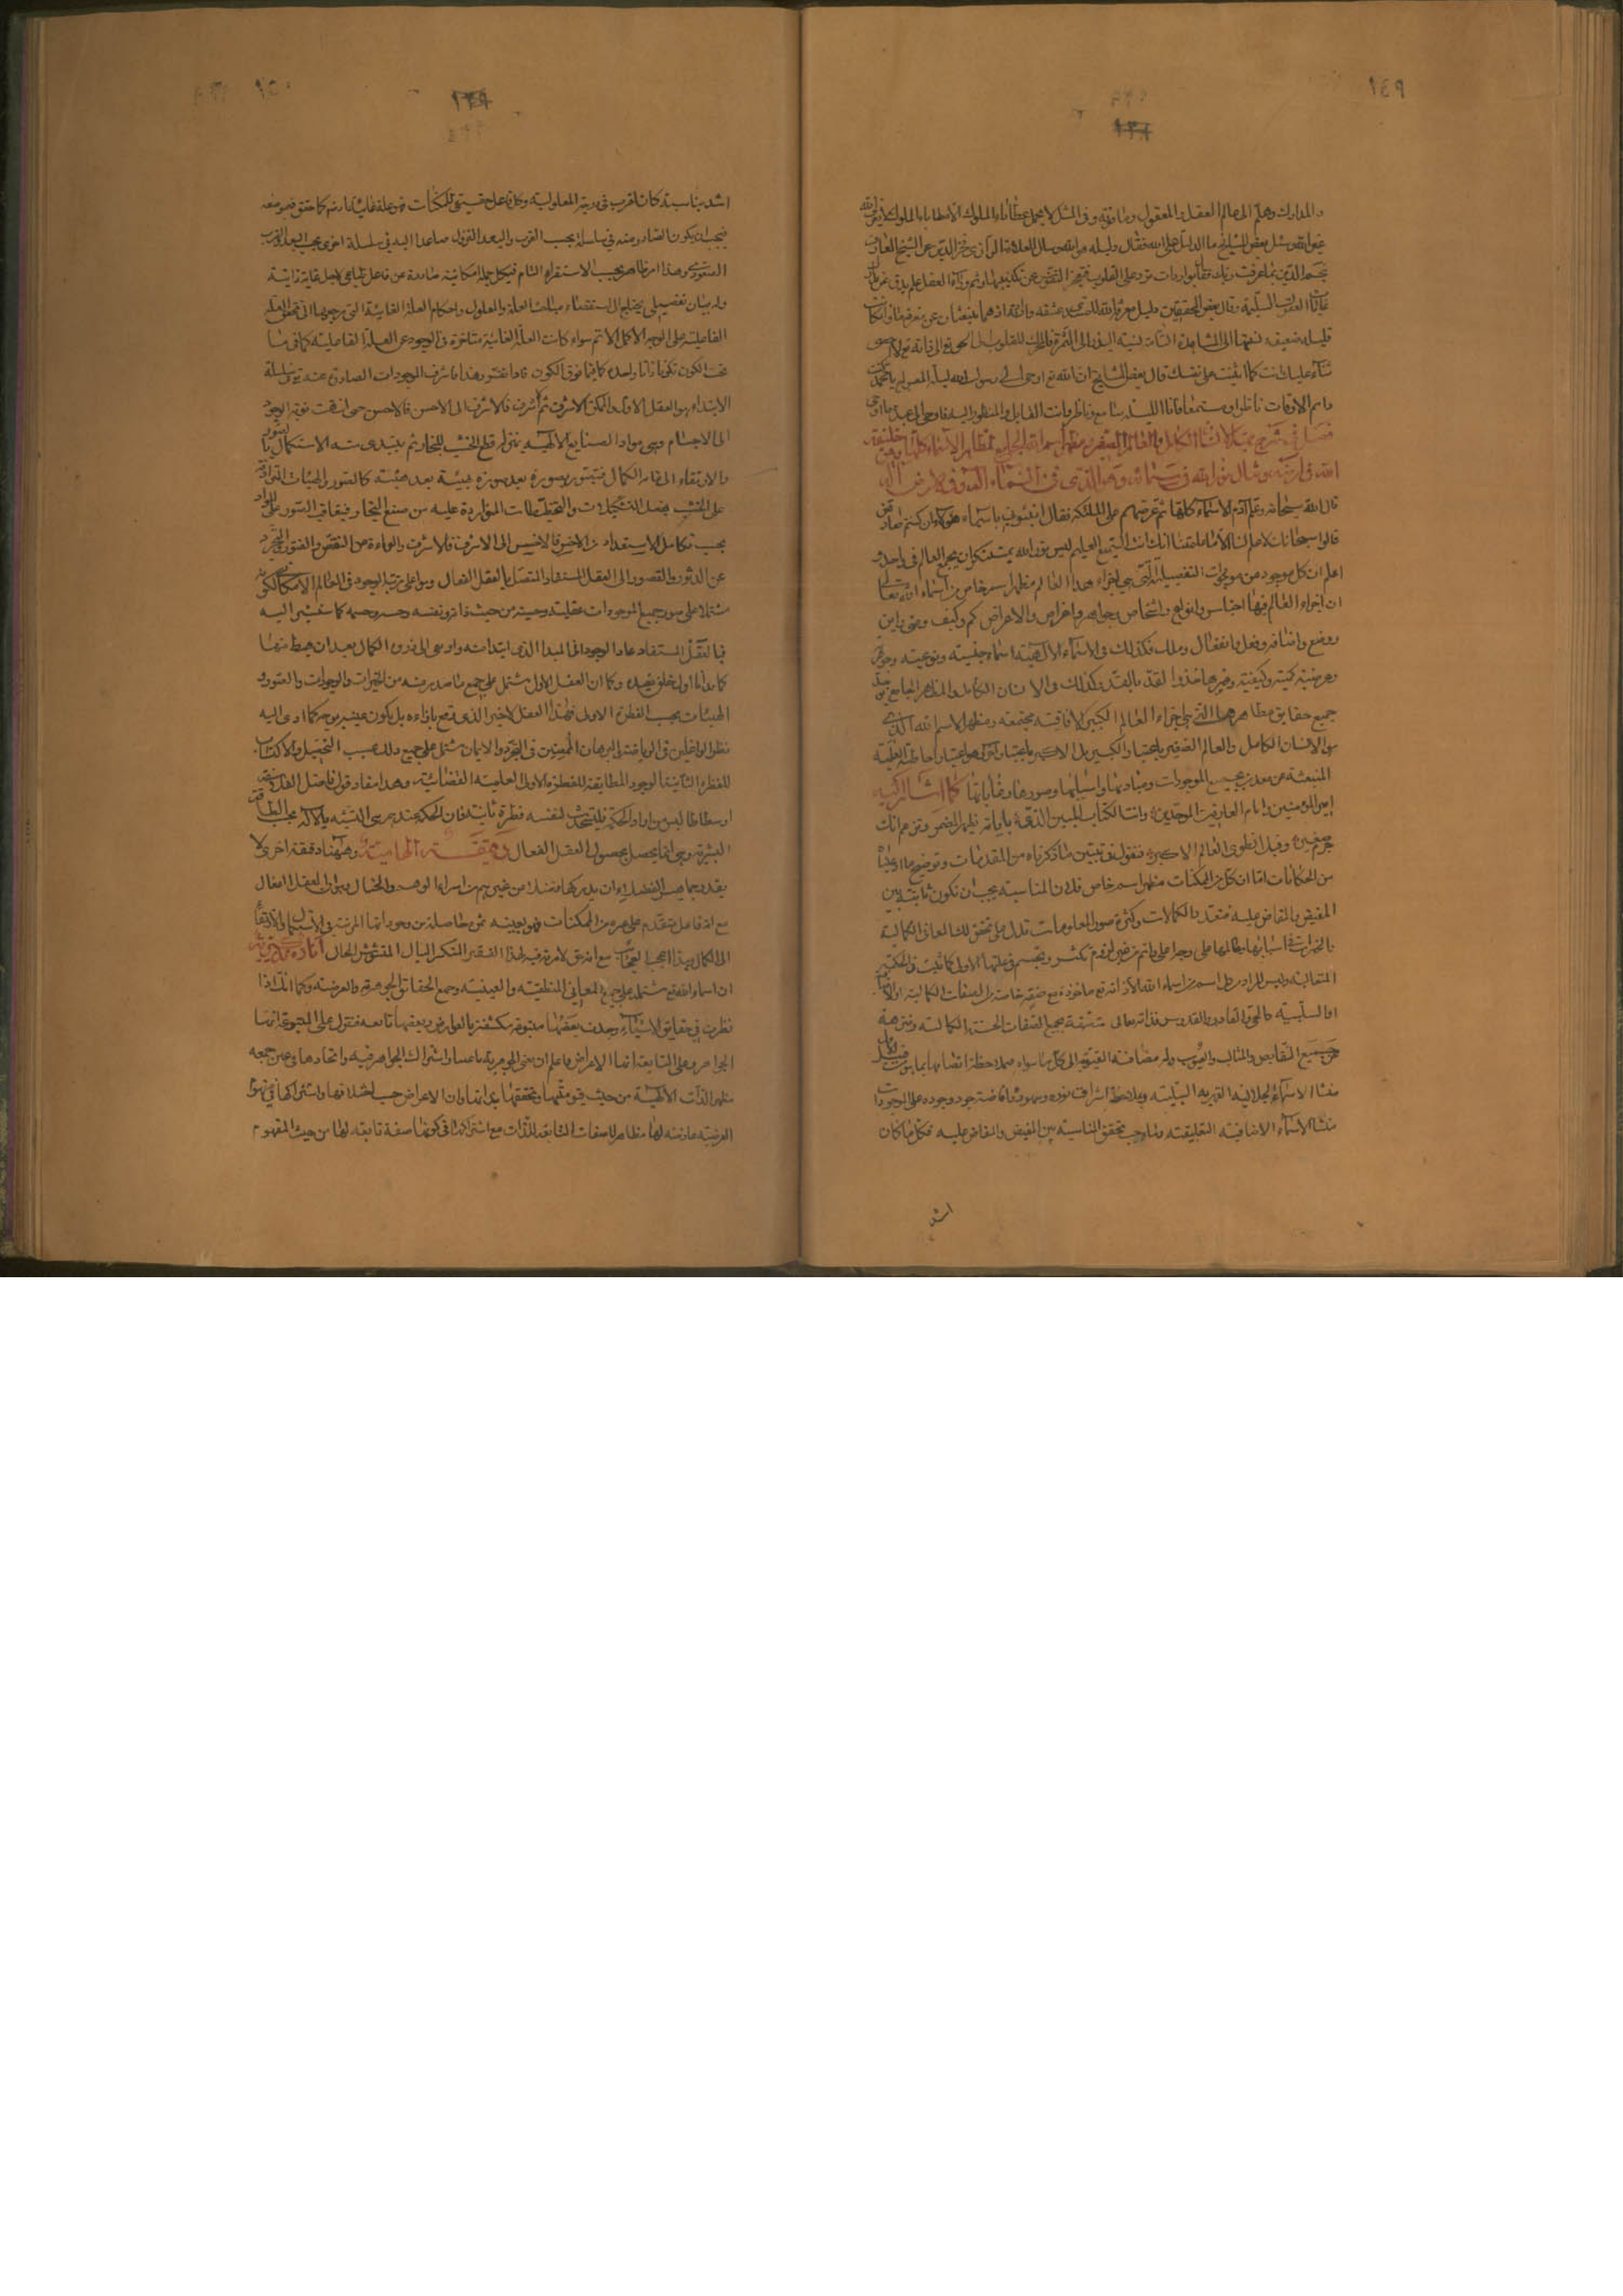 ١٤٩
١٣٨
والمدارك وهلم الى عالم العقل والمعقول
بعض المشايخ ما الدليل على الله فقال دليله هو الله وسأل العلامة الرازي فخر الدين عن الشيخ العارف
نجم الدين بما عرفت ربك فقال بواردات ترد على القلوب فتعجز النفس عن تكذيبها
وقال بعض المحققين دليل معرفة الله للمبتدى عشقه
ثناء عليك انت كما اثنيت على نفسك قال بعض المشايخ ان الله تع اوحى الى رسول الله ليلة المعراج يا محمد كنت
دائم الاوقات ناظرا ومستمعا فانا الليلة سامع وناظر وانت القايل والمنظور اليه فاوحى الى عبده ما اوحى
فصل في شرح
الله في ارضه ومثال نور الله في سمائه وهو الذى فى السماء اله وفى الارض اله
قال الله سبحانه وعلم آدم الاسماء كلها ثم عرضهم على الملئكة فقال انبئونى باسماء هؤلاء ان كنتم صادقين
قالوا سبحانك لا علم لنا الا ما علمتنا انك انت السميع العليم ليس من الله بمستنكر ان يجمع العالم فى واحد
اعلم ان كل موجود من موجودات التفصيلية التى هى اجزاء هذا العالم مظهر اسم خاص من اسماء الله تعالى
ان اجزاء العالم فيها اجناس وانواع واشخاص وجواهر واعراض والاعراض كم وكيف ومتى واين
ووضع واضافة وفعل وانفعال وملك فكذلك فى الاسماء الالهية اسماء جنسية ونوعية وجوهرية
وعرضية كمية وكيفية وغيرها حذو القذة بالقذة وكذلك فى الانسان الكامل والمظهر الجامع
جميع حقايق مظاهرها التى هى اجزاء العالم الكبير الافاقية مجتمعة ومظهر الاسم الله الذى
هو الانسان الكامل والعالم الصغير باعتبار والكبير بل الاكبر باعتبار آخر هو اعتبار احاطته العلمية
المنبعثة من معدن جميع الموجودات ومباديها واسبابها وصورها وغاياتها كما اشار اليه
امير المؤمنين وامام العارفين والموحدين وانت الكتاب المبين الذى باياته يظهر المضمر وتزعم انك
جرم صغير وفيك انطوى العالم الاكبر فنقول فى تبيين ما ذكرناه من المقدمات وتوضيح ما ادعيناه
من الحكايات اما ان كل من الممكنات مظهر اسم خاص فلان المناسبة يجب ان تكون ثابتة بين
المفيض والمفاض عليه فتعدد الكمالات وكثرة صور المعلومات تدل على تحقق تلك المعانى الكمالية
والخيرات فى اسبابها
المتعالية وليس المراد من اسم من اسماء الله الا ذاته تع ماخوذة مع صفة خاصة من الصفات الكمالية
او السلبية كالحى والقادر والقدوس فذاته تعالى متصفة بجميع الصفات الحسنة الكمالية ومنزهة
عن جميع النقايص والمثالب والعيوب وله مضافة القيومية الى كل ما سواه
منشأ الاسماء الجلالية القهرية السلبية وبملاحظة اشراق نوره وجوده على الموجودات
منشأ الاسماء الاضافية التعليقية ولما وجب تحقق المناسبة بين المفيض والمفاض عليه فكل ما كان
اشد
١٥٠
١٣٩
اشد مناسبة كان اقرب فى درجة المعلولية وكل فاعل حقيقى للممكنات فهو علة غائية لازم كما حقق فى موضعه
فيجب ان يكون الصادر منه فى سلسلة بحسب القرب والبعد النزول صاعدا اليه فى سلسلة اخرى بحسب البعد والقرب
الصعودى وهذا امر ظاهر بحسب الاستقراء التام فيكل جملة امكانية صادرة عن فاعل طباعى لاجل غاية ذاتية
وله بيان تفصيلى يحتاج الى استقصاء مباحث العلة والمعلول واحكام العلة الغائية التى مرجعها الى تحقق العلة
الفاعلية على الوجه الاكمل الاتم سواء كانت العلة الغائية متاخرة فى الوجود عن العلة الفاعلية كما فى ما
تحت الكون فاذا تقرر هذا فاشرف الموجودات الصادرة عنه تع فى سلسلة
الابتداء هو العقل الاول والممكن الاشرف ثم الاشرف فالاشرف الى الاحسن فالاحسن حتى انتهت نوبة الوجود
الى الاجسام وهى مواد الصنايع الالهية بمنزلة قطع الخشب للنجار ثم يبتدى منه الاستكمال بالصور
والارتقاء الى مقام الكمال فتتصور بصورة بعد صورة وهيئة بعد هيئة كالصور والهيئات المترادفة
على الخشب بفعل التشكيلات والتخطيطات المتواردة عليه من صنع النجار فيتعاقب الصور على المواد
بحسب تكامل الاستعداد من الاخس فالاخس الى الاشرف فالاشرف والبراءة من النقص والفتور والتجرد
عن الدثور والقصور الى العقل المستفاد المتصل بالعقل الفعال وبه اعلى مرتبة الوجود فى العالم الامكانى لكونه
مشتملا على صور جميع الموجودات عقلية وحسية من حيث ذاته ونفسه وحسه وجسمه كما ستشير اليه
فبالعقل المستفاد عاد الوجود الى المبدا الذى ابتدا منه وارتقى الى ذروة الكمال بعد ان هبط منها
كما بدانا اول خلق نعيده وكما ان العقل الاول مشتمل على جميع ما صدر منه من الخيرات والوجودات والصور و
الهيئات بحسب الفطرة الاولى فهذا العقل الاخير الذى يقع بازاءه بل يكون عينه بوجه كما ادى اليه
نظر الواغلين فى الرياضة والبرهان الممعنين فى التجرد والايمان مشتمل على جميع ذلك بحسب التحصيل والاكتساب
للفطرة الثانية الوجود المطابقة للفطرة الاولى العلمية القضائية وهذا مفاد قول فاضل الفلاسفة
ارسطاطاليس من اراد الحكمة فليستحدث لنفسه فطرة ثانية فان الحكمة عندهم هى التشبه بالاله بحسب الطاقة
البشرية وهى انما يحصل بحصول العقل الفعال دقيقة الهامية وههنا دقيقة اخرى لا
يقدر جماهير الفضلاء ان يدركها فضلا من غيرهم من اسراء الوهم والخيال وهو ان العقل الفعال
مع انه فاعل متقدم على هذه الممكنات فهو بعينه ثمرة حاصلة من وجوداتها المترتبة فى الاستكمال والارتقاء
الى الكمال وهذا العجب العجاب مع انه حق لا مرية فيه لهذا الفقير المنكسر البال المشوش الحال
ان اسماء الله تع مشتملة على جميع المعانى المنطقية والعينية وجميع الحقايق الجوهرية والعرضية وكما انك اذا
نظرت فى حقايق الاشياء وجدت بعضها متبوعة مكتنفة بالعوارض وبعضها تابعة فتقول على المتبوعة انها
الجواهر وعلى التابعة انها الاعراض فاعلم ان معنى الجوهرية باعتبار اشتراك الجواهر فيه واتحادها فى عين جمعه
مظهر الذات الالهية من حيث قيوميتها وتحققها بذاتها وان الاعراض حسب اختلافها واشتراكها فى مفهوم
العرضية عارضة لها مظاهر للصفات التابعة للذات مع اشتراكها فى كونها صفة تابعة لها من حيث المفهوم